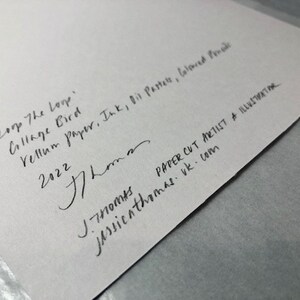 Loop The Loop'
Collage Bird
Vellum Paper, Ink, Oil Pastels, Coloured Pencils
2022
JThomas
J.THOMAS PAPERCUT ARTIST & ILLUSTRATOR
jessicathomas-uk.com